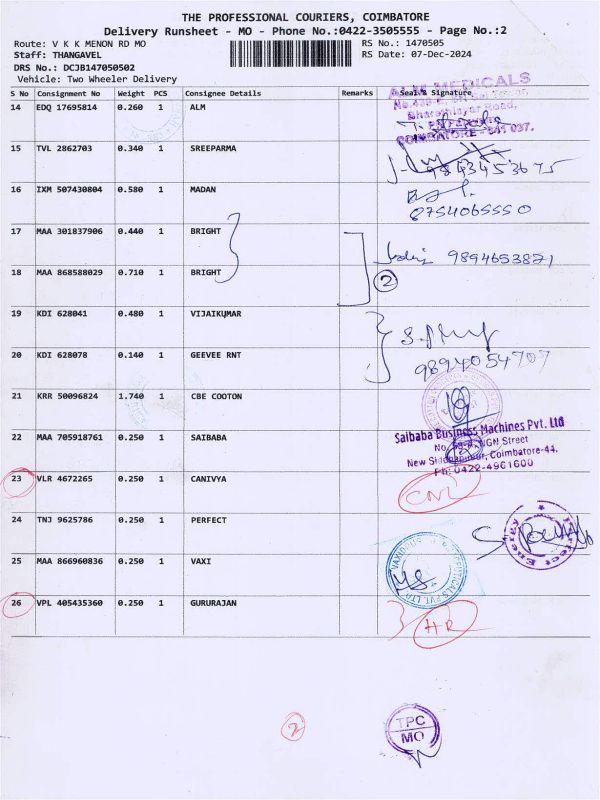 THE PROFESSIONAL COURIERS, COIMBATORE
Delivery Runsheet - MO - Phone No.:0422-3505555 - Page No.:2
Route: V K K MENON RD MO RS No.: 1470505
Staff: THANGAVEL RS Date: 07-Dec-2024
DRS No.: DCJB147050502
Vehicle: Two Wheeler Delivery
S No Consignment No Weight PCS Consignee Details Remarks Seal & Signature
14 EDQ 17695814 0.260 1 ALM
A.L.M MEDICALS
Bharathiyar Road,
COIMBATORE - 641 037.
15 TVL 2862703 0.340 1 SREEPARMA
9843453675
16 IXM 507430804 0.580 1 MADAN
8754065550
17 MAA 301837906 0.440 1 BRIGHT
9894653821
18 MAA 868588029 0.710 1 BRIGHT
2
19 KDI 628041 0.480 1 VIJAIKUMAR
20 KDI 628078 0.140 1 GEEVEE RNT
9894054707
21 KRR 50096824 1.740 1 CBE COOTON
22 MAA 705918761 0.250 1 SAIBABA
Saibaba Business Machines Pvt. Ltd
NGN Street
New Siddhapudur, Coimbatore-44.
Ph: 0422-4961600
23 VLR 4672265 0.250 1 CANIVYA
CNL
24 TNJ 9625786 0.250 1 PERFECT
Perfect Energy
25 MAA 866960836 0.250 1 VAXI
26 VPL 405435360 0.250 1 GURURAJAN
HR
2
TPC
MO